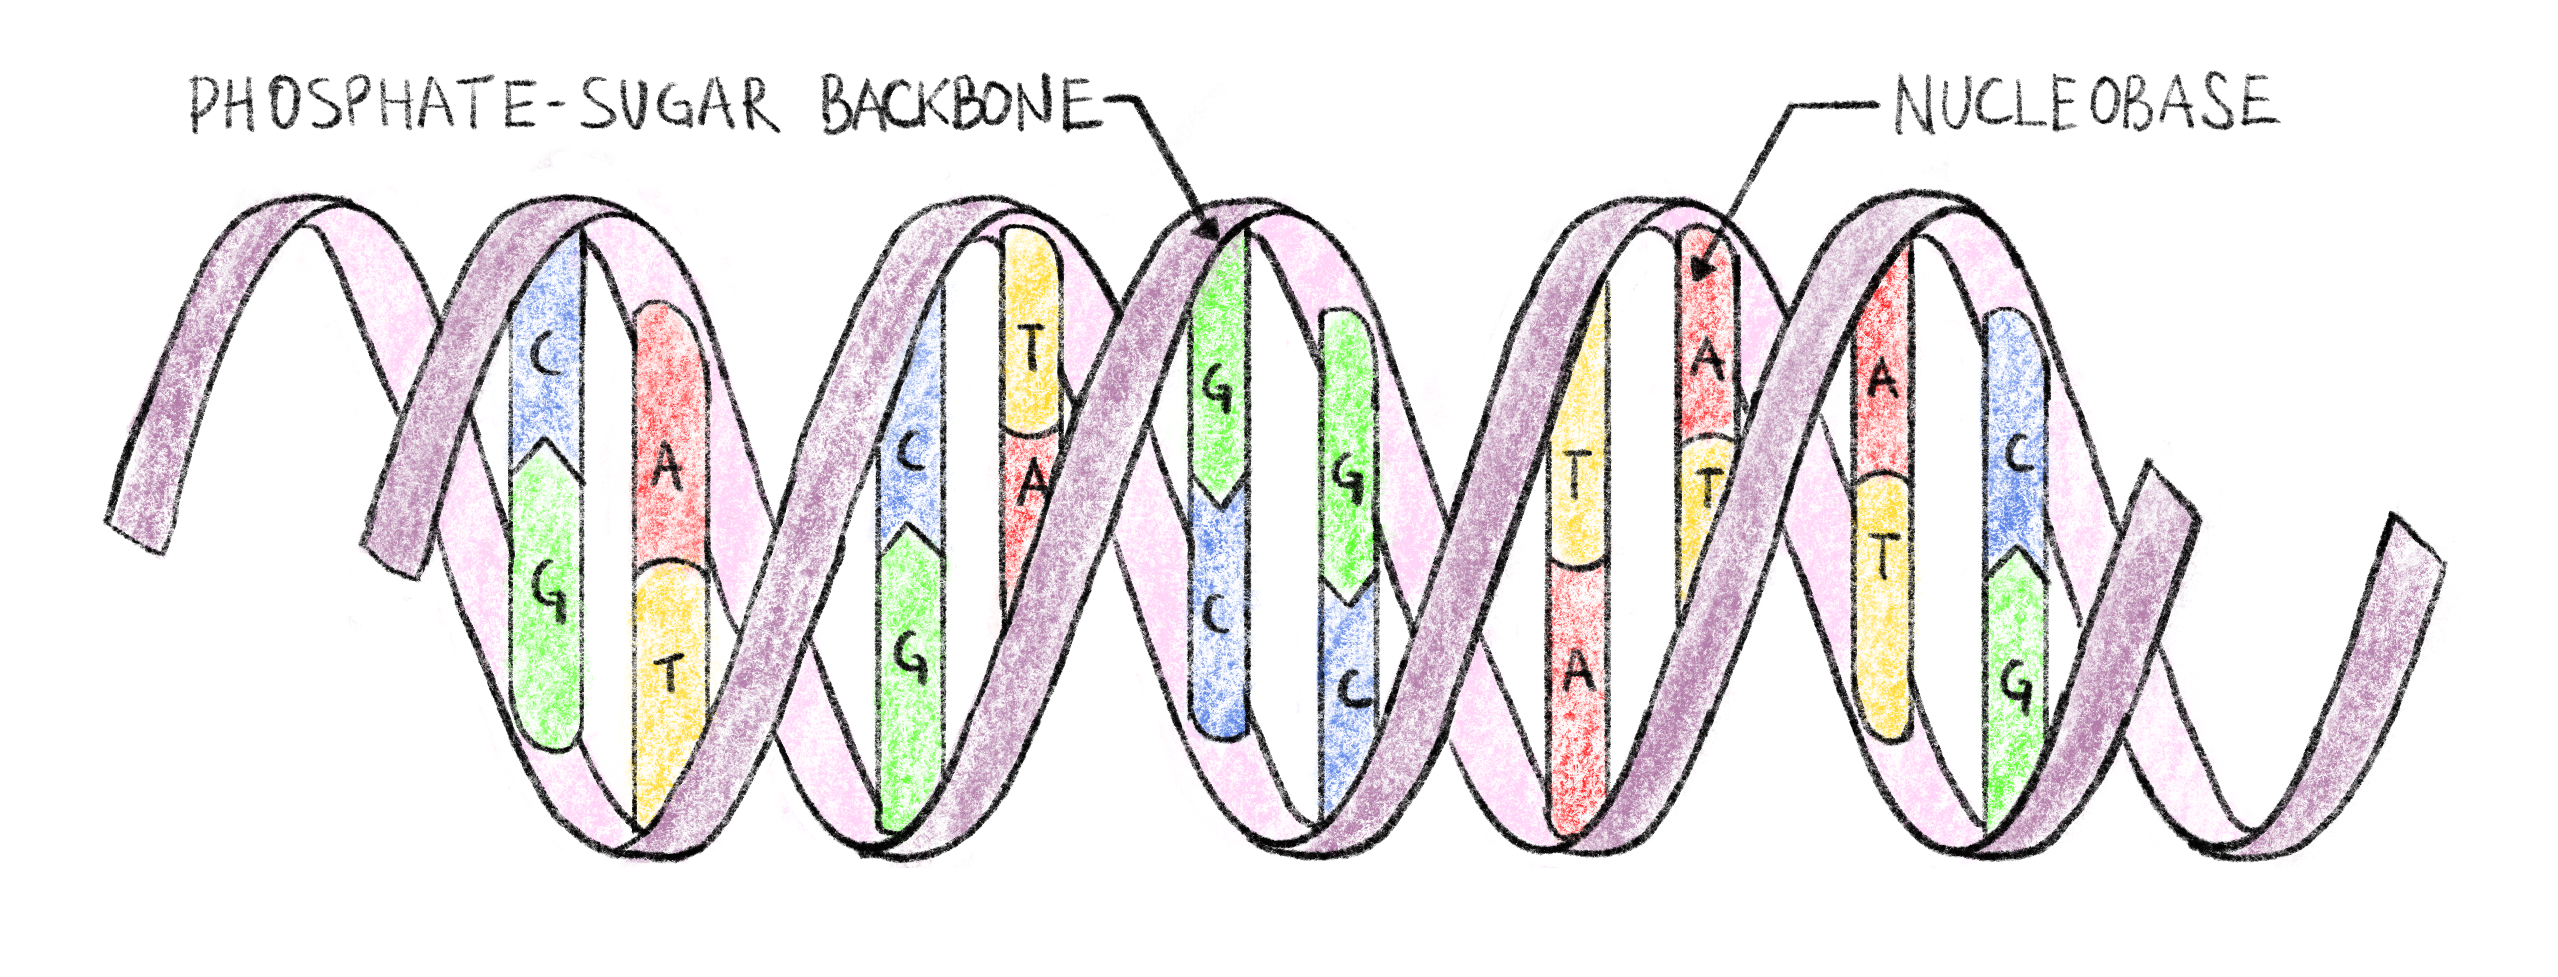 PHOSPHATE-SUGAR BACKBONE
NUCLEOBASE
C A C T G G T A A C
G T G A C C A T T G